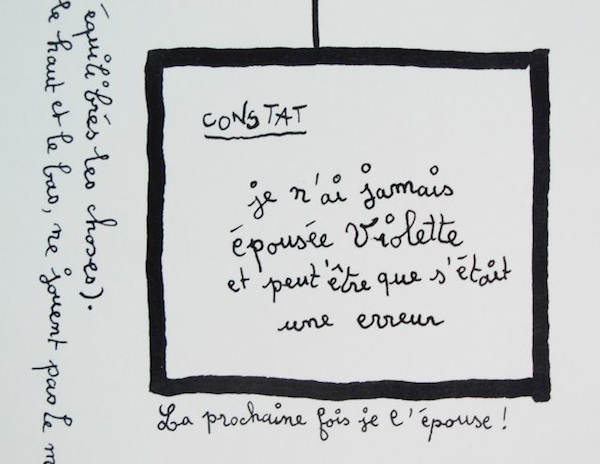 équilibrés les choses).
le haut et le bas, ne jouent pas le m
CONSTAT
je n'ai jamais
épousée Violette
et peut'être que s'était
une erreur
La prochaine fois je l'épouse !